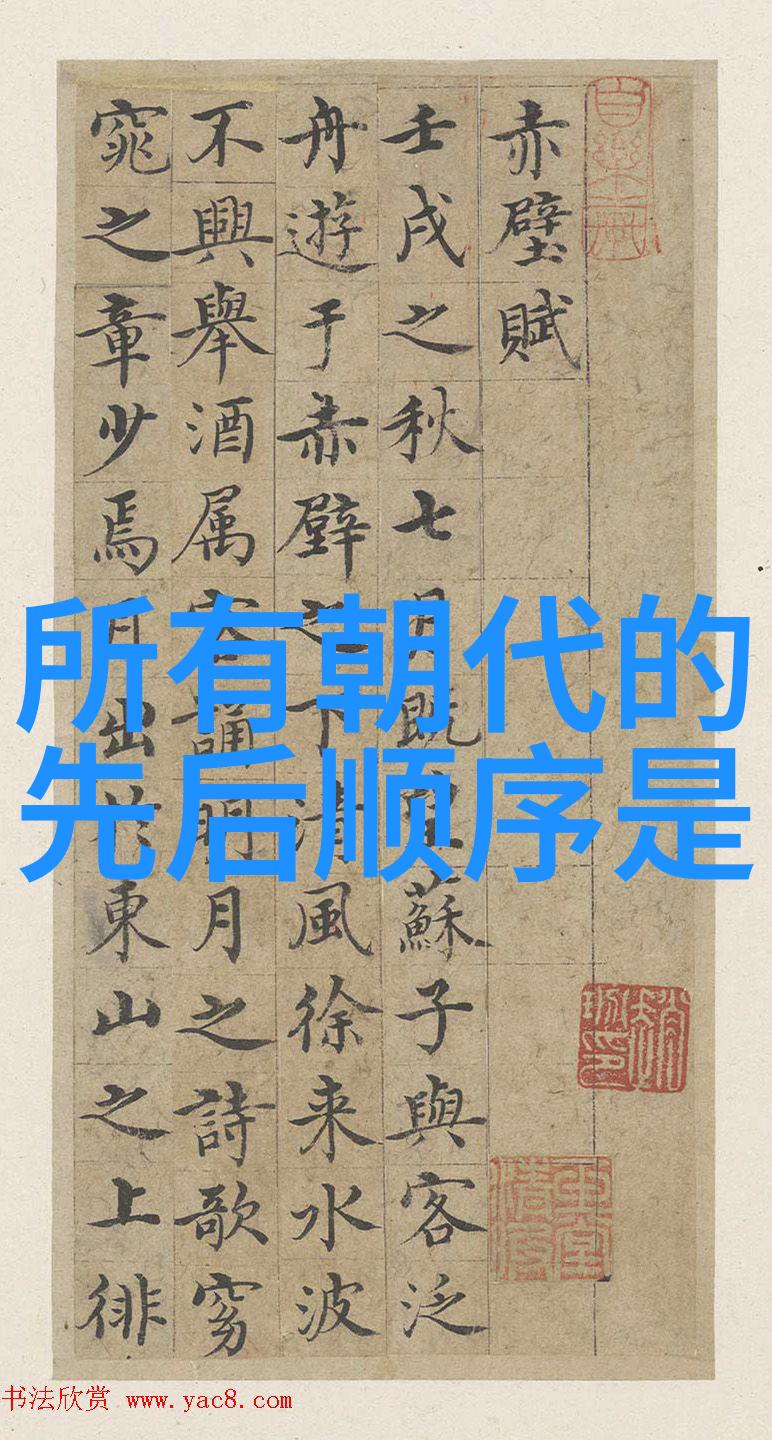 所有朝代的
先后顺序是
赤壁賦
壬戌之秋七月既望蘇子與客泛
舟遊于赤壁之下清風徐来水波
不興舉酒属客誦明月之詩歌窈
窕之章少焉月出於東山之上徘
书法欣赏 www.yac8.com